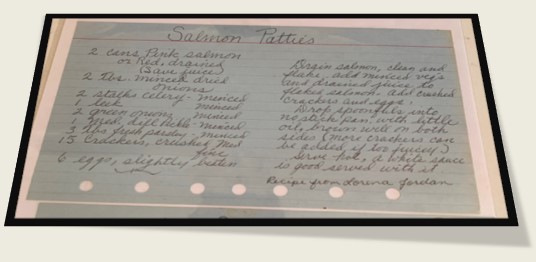 Salmon Patties
2 cans Pink salmon
or Red, drained
(Save juice)
2 Tbs. minced dried
onions
2 stalks celery - minced
1 leek minced
2 green onions, minced
1 med. dill pickle - minced
3 tbs fresh parsley - minced
15 crackers, crushed med
fine
6 eggs, slightly beaten
Drain salmon, clean and
flake, add minced veg's
and drained juice to
flaked salmon. add crushed
crackers and eggs.
Drop spoonfuls into
nostick pan, with little
oil, brown well on both
sides (more crackers can
be added if too juicy.)
Serve hot, a white sauce
is good served with it.
Recipe from Lorena Jordan